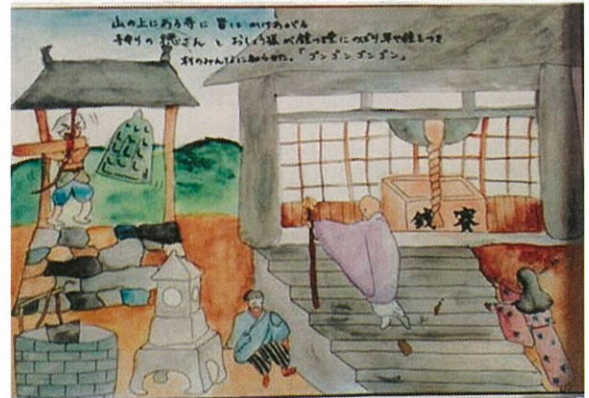 山の上にある寺に皆してかけあがる
子守りの徳さんとおしょう様が鐘つき堂にのぼり早や鐘をつき
村のみんなに知らせた。「ゴンゴンゴンゴン」
賽銭